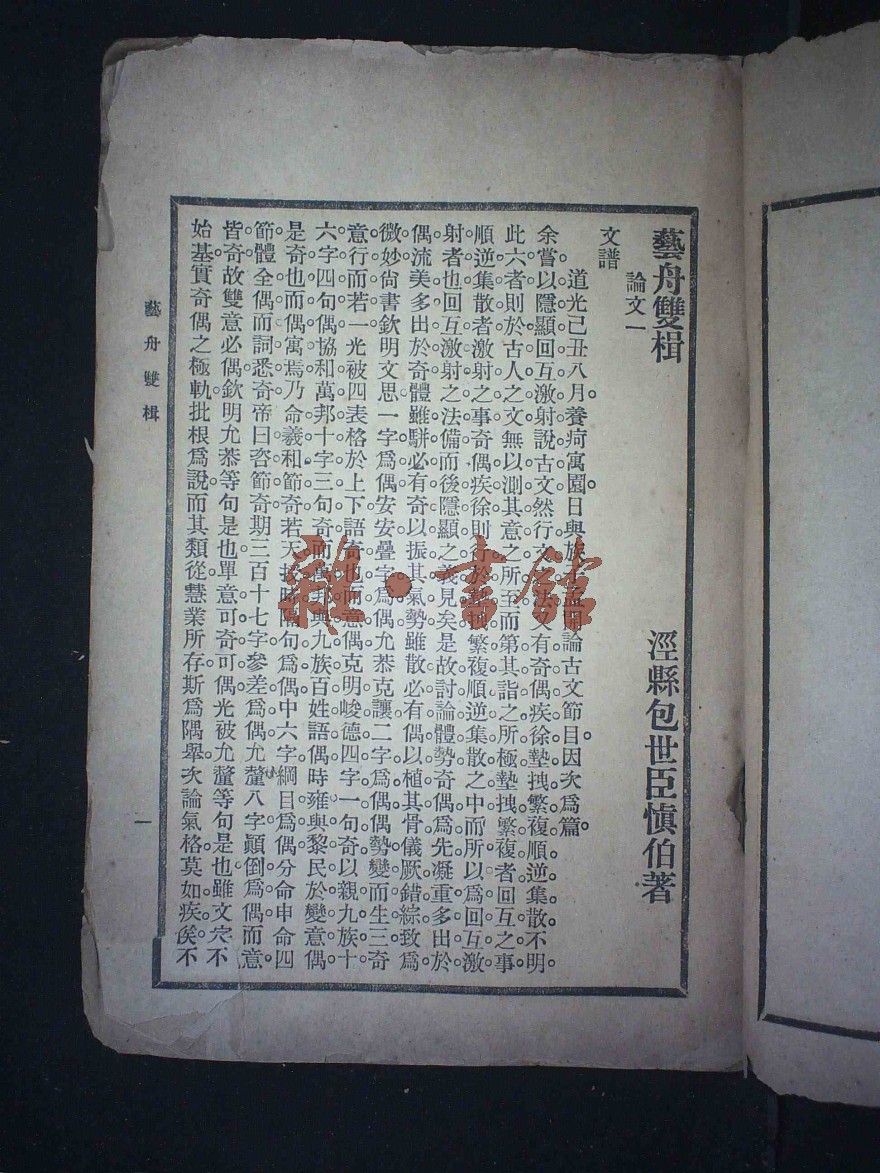 藝舟雙楫
涇縣包世臣慎伯著
論文一
文譜
道光己丑八月。養疴寓園。日與族論古文節目。因次為篇。
余嘗以隱顯回互激射說古文。然行文之法。又有奇偶疾徐墊拽繁複順逆集散。不明
此六者。則於古人之文。無以測其意之所至。而第其詣之所極。墊拽繁複者。回互之事。
順逆集散者。激射之事。奇偶疾徐。則行於墊拽繁複順逆集散之中。而所以為回互激
射者也。回互激射之法備。而後隱顯之義見矣。是故討論體勢。奇偶為先。凝重多出於
偶。流美多出於奇。體雖駢。必有奇以振其氣。勢雖散。必有偶以植其骨。儀厥錯綜。致為
微妙。尚書欽明文思。一字為偶。安安。疊字為偶。允恭克讓。二字為偶。偶勢變而生三。奇
意行而若一。光被四表。格於上下。語奇也而意偶。克明峻德。四字一句奇。以親九族十
六字四句偶。協和萬邦十字三句奇。而萬邦與九族百姓語偶。時雍與黎民於變意偶。
是奇也而偶寓焉。乃命羲和節奇。若天授時隔句為偶。中六字綱目為偶。分命申命四
節。體全偶而詞悉奇。帝曰咨節奇。期三百十七字。參差為偶。允釐八字。顛倒為偶。而意
皆奇。故雙意必偶。欽明允恭等句是也。單意可奇可偶。光被允釐等句是也。雖文穴不
始基。實奇偶之極軌。批根為說。而其類從。慧業所存。斯為隅舉。次論氣格。莫如疾俟。不
藝舟雙楫
一
雜·書館